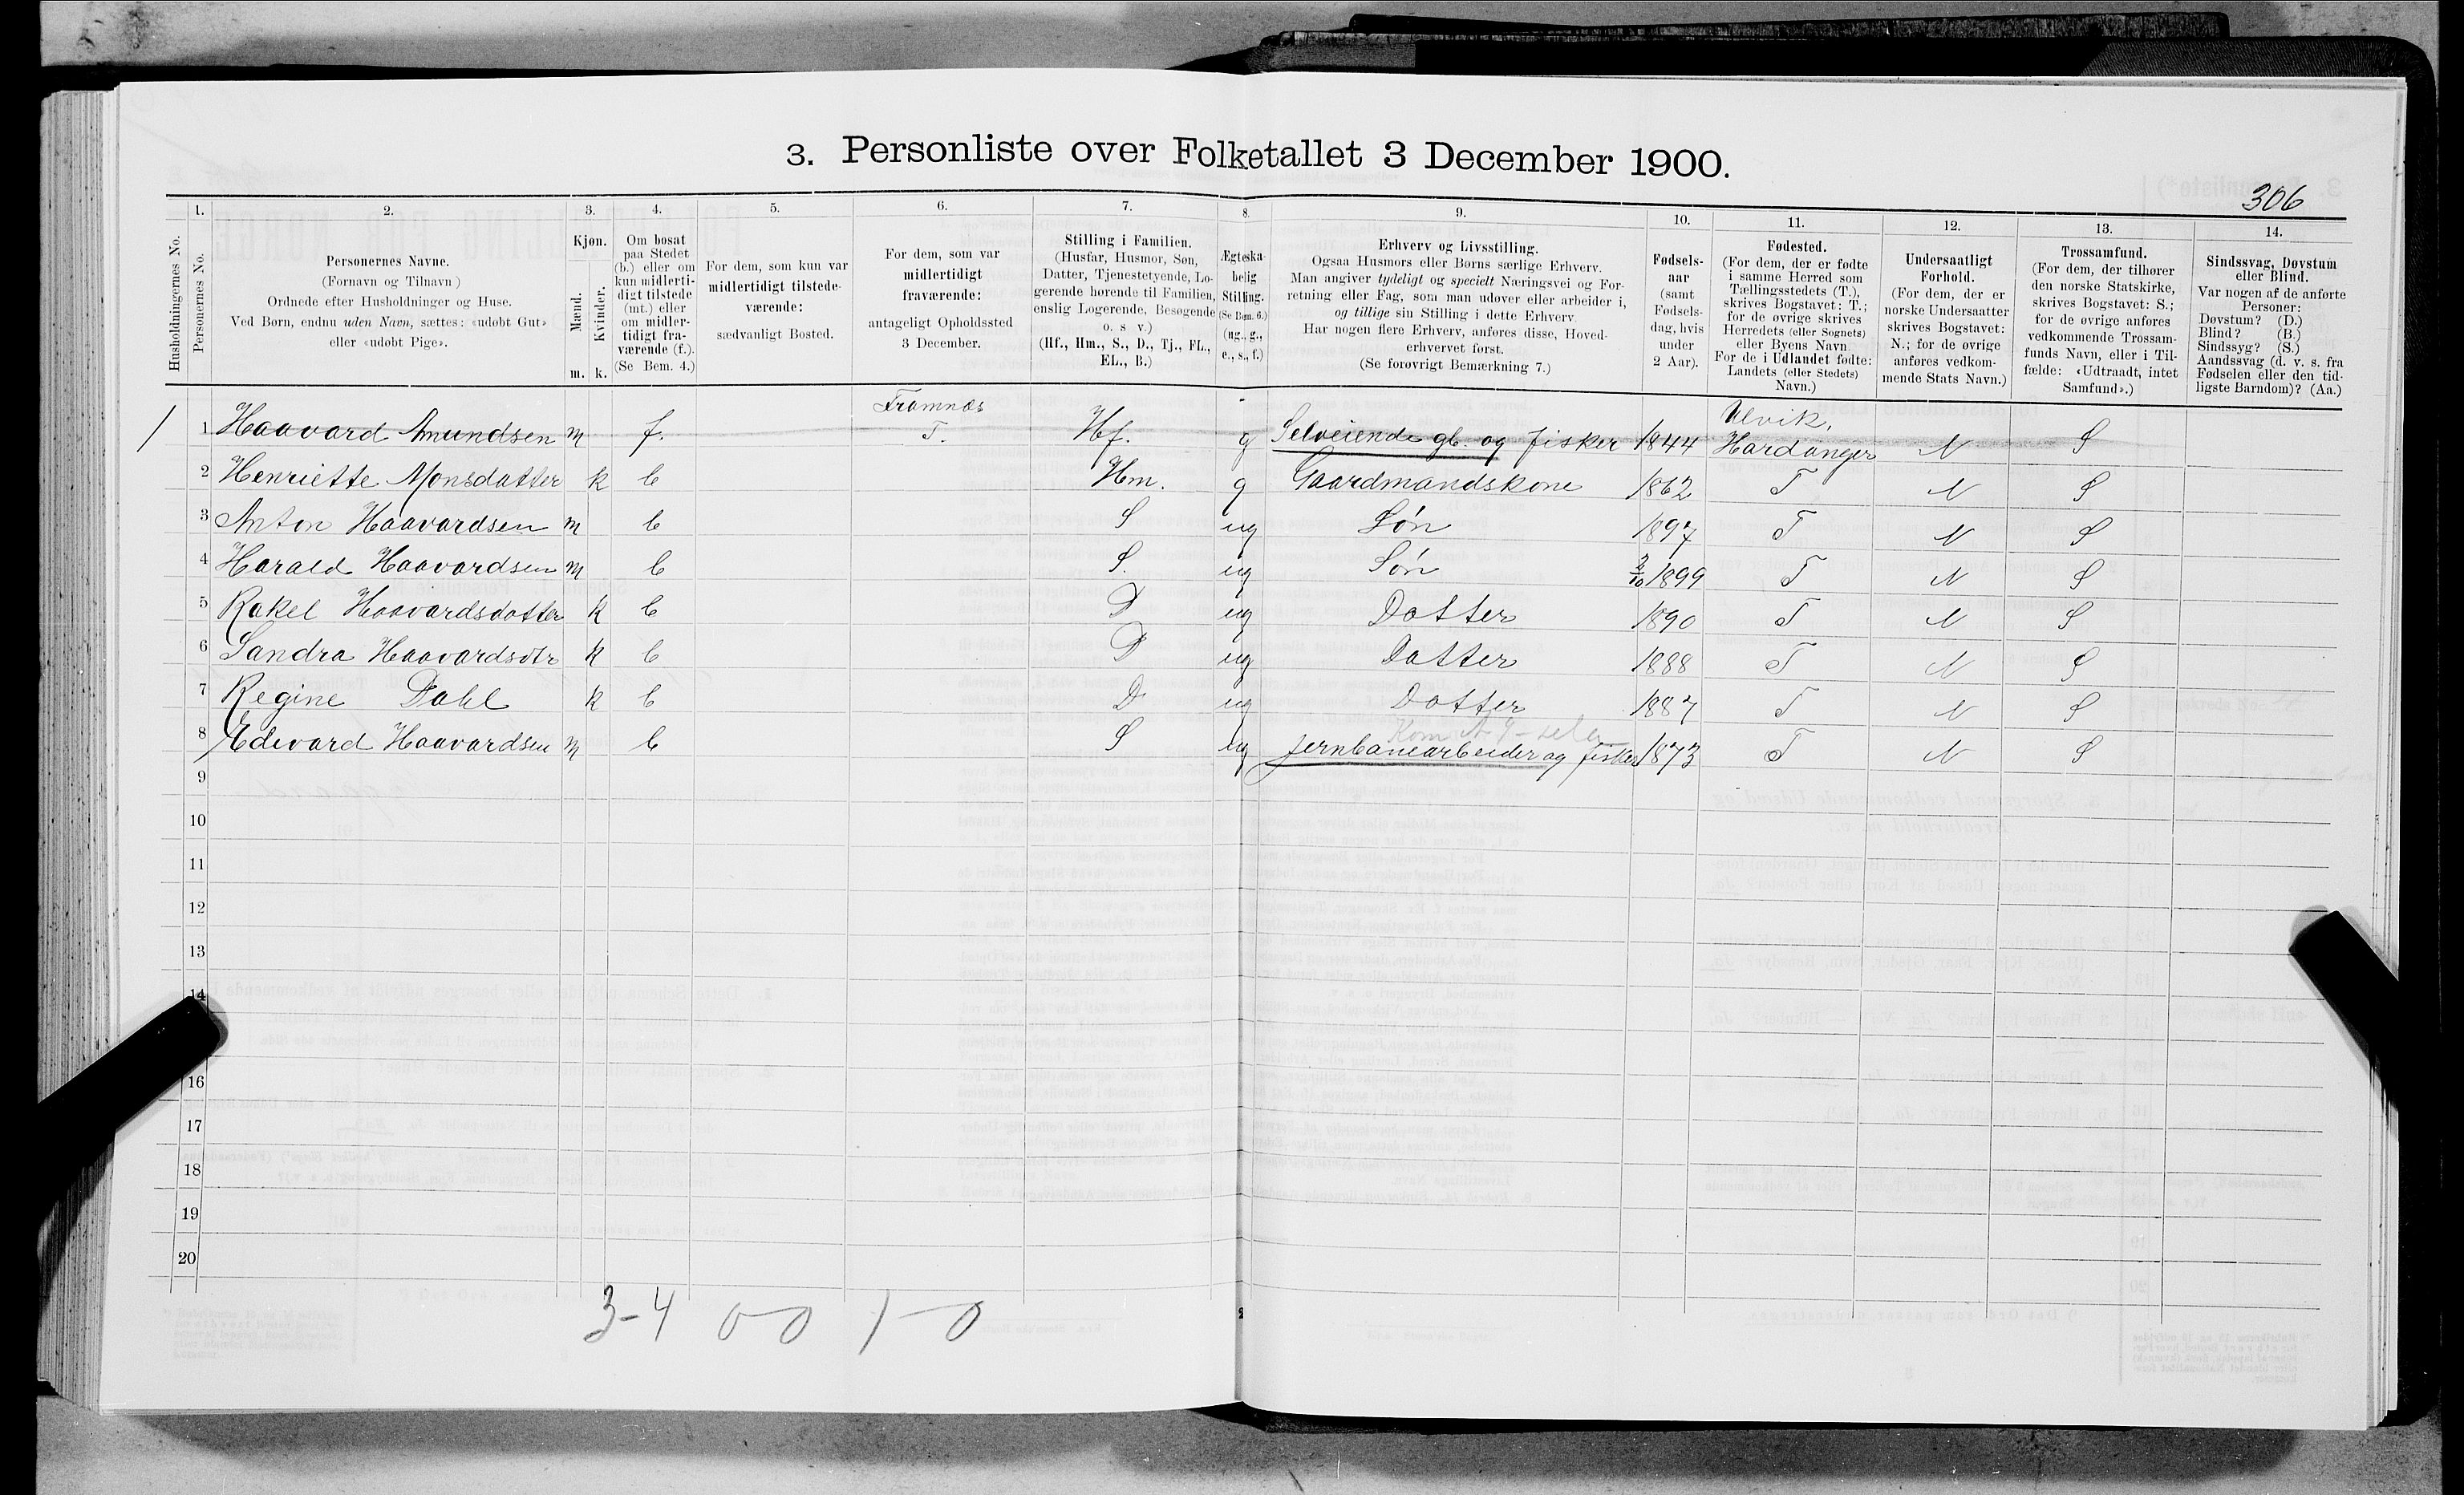 3. Personliste over Folketallet 3 December 1900.
306
Husholdningernes No.
1. Personernes No.
2. Personernes Navne.
(Fornavn og Tilnavn)
Ordnede efter Husholdninger og Huse.
Ved Børn, endnu uden Navn, sættes: «udøbt Gut»
eller «udøbt Pige».
3. Kjøn.
Mænd. Kvinder.
m. k.
4. Om bosat
paa Stedet
(b.) eller om
kun midlerti-
digt tilstede
(mt.) eller
om midler-
tidigt fra-
værende (f.).
(Se Bem. 4.)
5. For dem, som kun var
midlertidigt tilstede-
værende:
sædvanligt Bosted.
6. For dem, som var
midlertidigt
fraværende:
antageligt Opholdssted
3 December.
7. Stilling i Familien.
(Husfar, Husmor, Søn,
Datter, Tjenestetyende, Lo-
gerende hørende til Familien,
enslig Logerende, Besøgende
o. s v.)
(Hf., Hm., S., D., Tj., FL.,
EL., B.)
8. Ægteska-
belig
Stilling.
(Se Bem. 6.)
(ug., g.,
e., s., f.)
9. Erhverv og Livsstilling.
Ogsaa Husmors eller Børns særlige Erhverv.
Man angiver tydeligt og specielt Næringsvei og For-
retning eller Fag, som man udøver eller arbeider i,
og tillige sin Stilling i dette Erhverv.
Har nogen flere Erhverv, anføres disse, Hoved-
erhvervet først.
(Se forøvrigt Bemærkning 7.)
10. Fødsels-
aar
(samt
Fødsels-
dag, hvis
under
2 Aar).
11. Fødested.
(For dem, der er fødte
i samme Herred som
Tællingsstedets (T.),
skrives Bogstavet: T.;
for de øvrige skrives
Herredets (eller Sognets)
eller Byens Navn.
For de i Udlandet fødte:
Landets (eller Stedets)
Navn.)
12. Undersaatligt
Forhold.
(For dem, der er
norske Undersaatter
skrives Bogstavet:
N.; for de øvrige
anføres vedkom-
mende Stats Navn.)
13. Trossamfund.
(For dem, der tilhører
den norske Statskirke,
skrives Bogstavet: S.;
for de øvrige anføres
vedkommende Trossam-
funds Navn, eller i Til-
fælde: «Udtraadt, intet
Samfund».)
14. Sindssvag, Døvstum
eller Blind.
Var nogen af de anførte
Personer:
Døvstum? (D.)
Blind? (B.)
Sindssyg? (S.)
Aandssvag (d. v. s. fra
Fødselen eller den tid-
ligste Barndom)? (Aa.)
Framnæs Ulvik,
1 1 Haavard Amundsen m f. T. Hf. g Selveiende gb. og fisker 1844 Hardanger N S
2 Henriette Monsdatter k b Hm. g Gaardmandskone 1862 T N S
3 Anton Haavardsen m b S ug Søn 1897 T N S
4 Harald Haavardsen m b S. ug Søn 2/10 1899 T N S
5 Rakel Haavardsdatter k b D ug Datter 1890 T N S
6 Sandra Haavardsdtr k b D ug Datter 1888 T N S
7 Regine Dahl k b D ug Datter 1887 T N S
8 Edevard Haavardsen m b S ug jernbanearbeider og fisker 1873 T N S
9
10
11
12
13
14
16
17
18
19
20
3-4 0-0 1-0